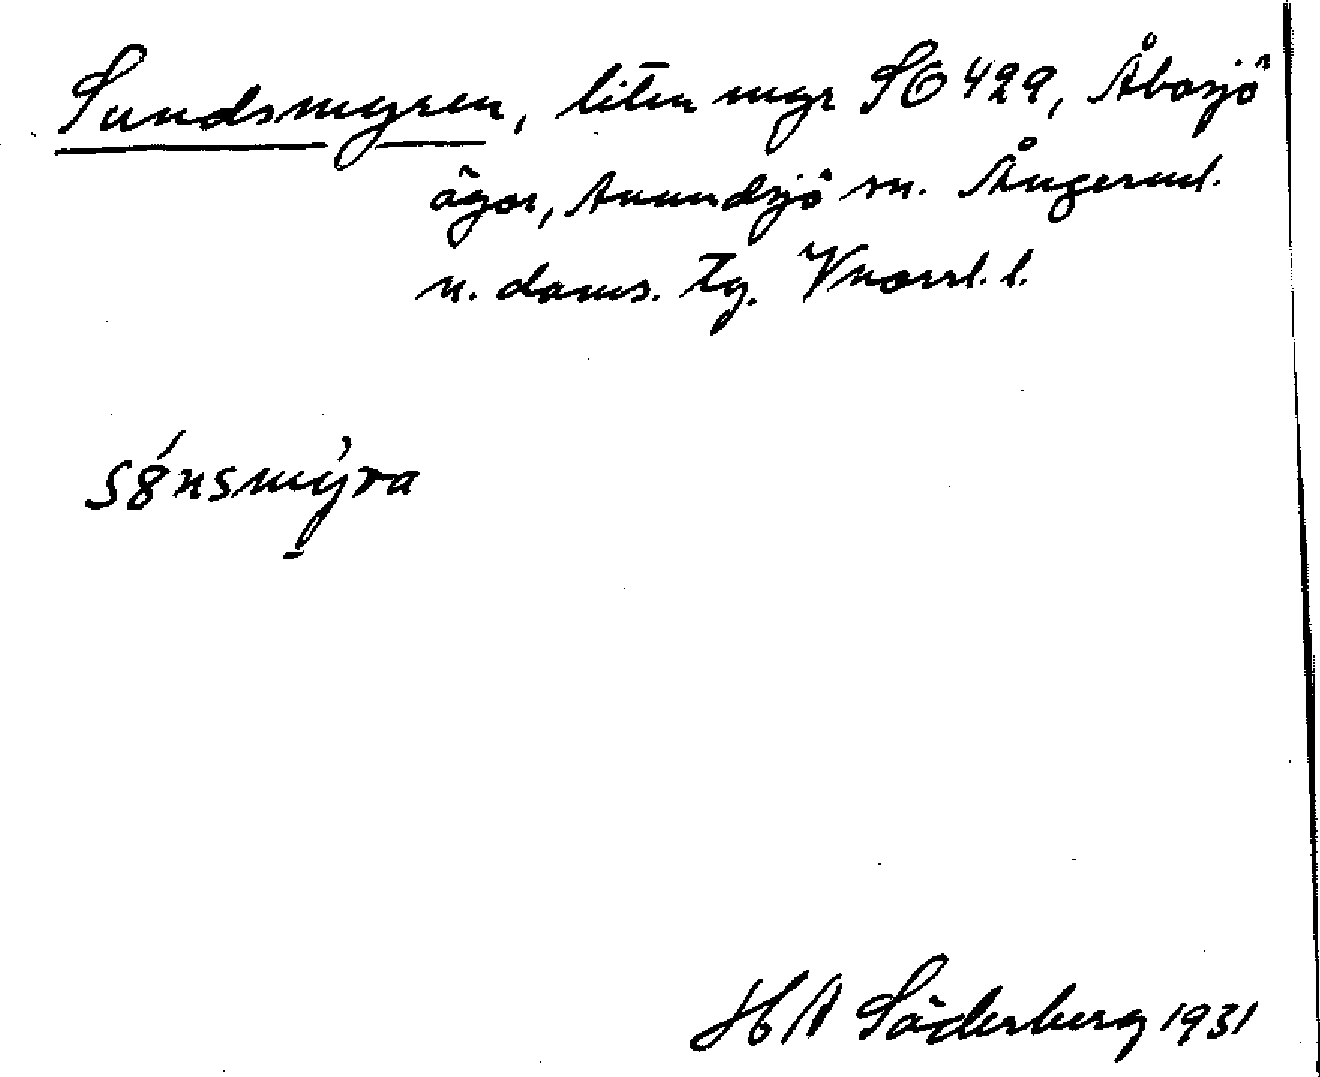 Sundsmyren, liten myr SO 429, Åbosjö
ägor, Anundsjö sn. Ångerml.
n. doms. tg. Vnorrl. l.
sǿnsmýra
H A Söderberg 1931